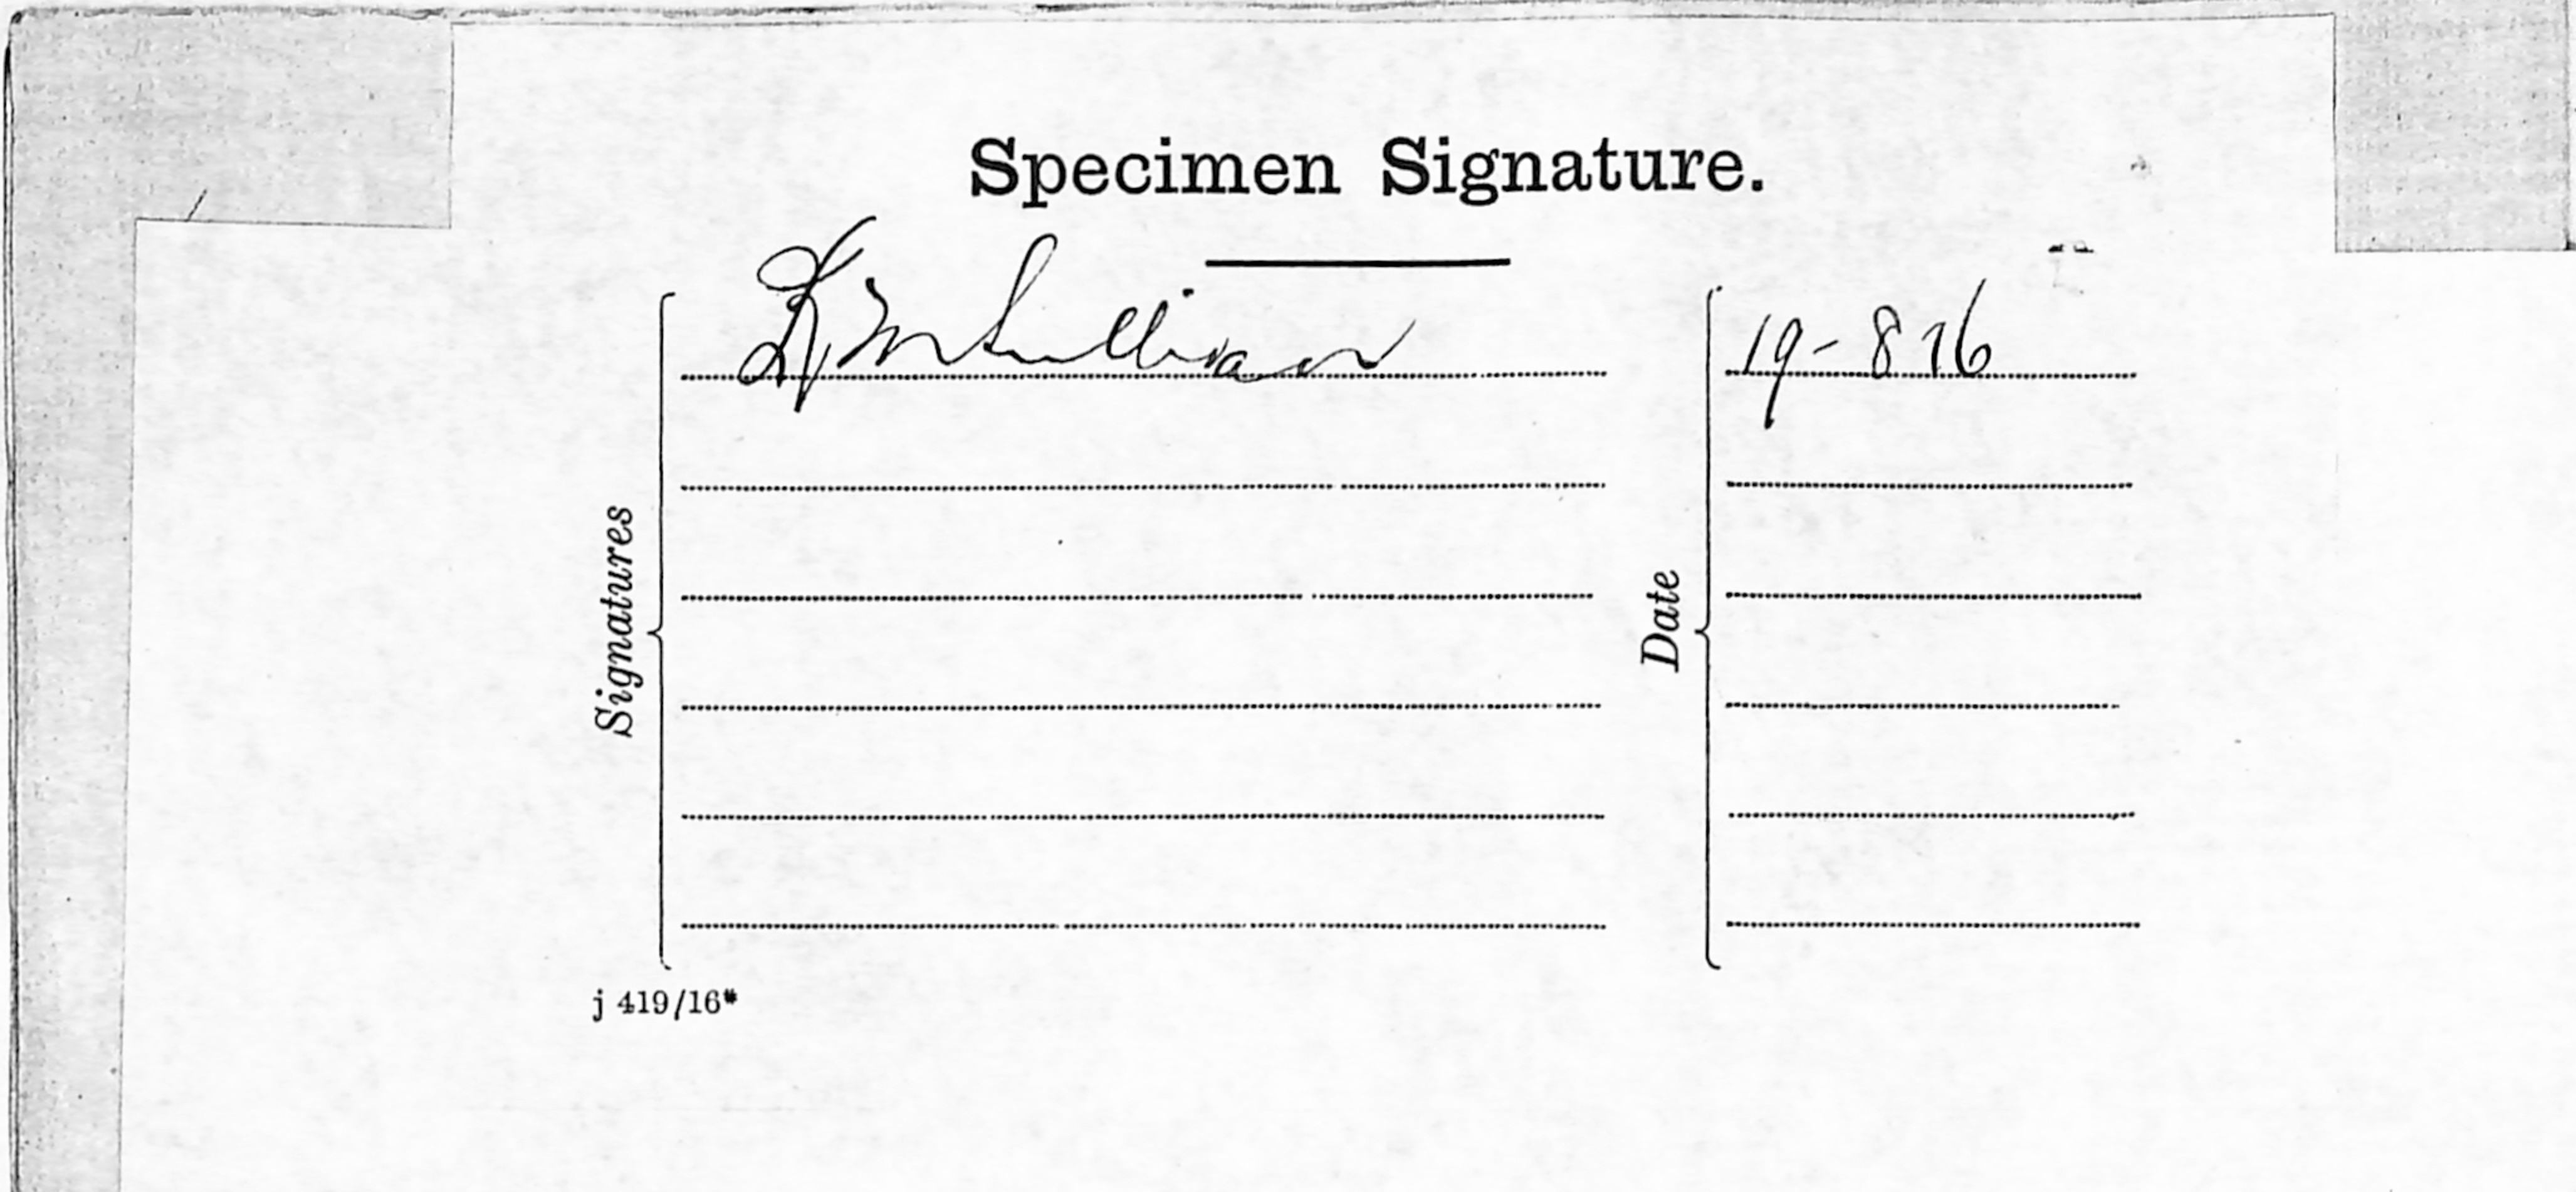 Specimen Signature.
Sullivan
19-8 16
Signatures
Date
j 419/16*